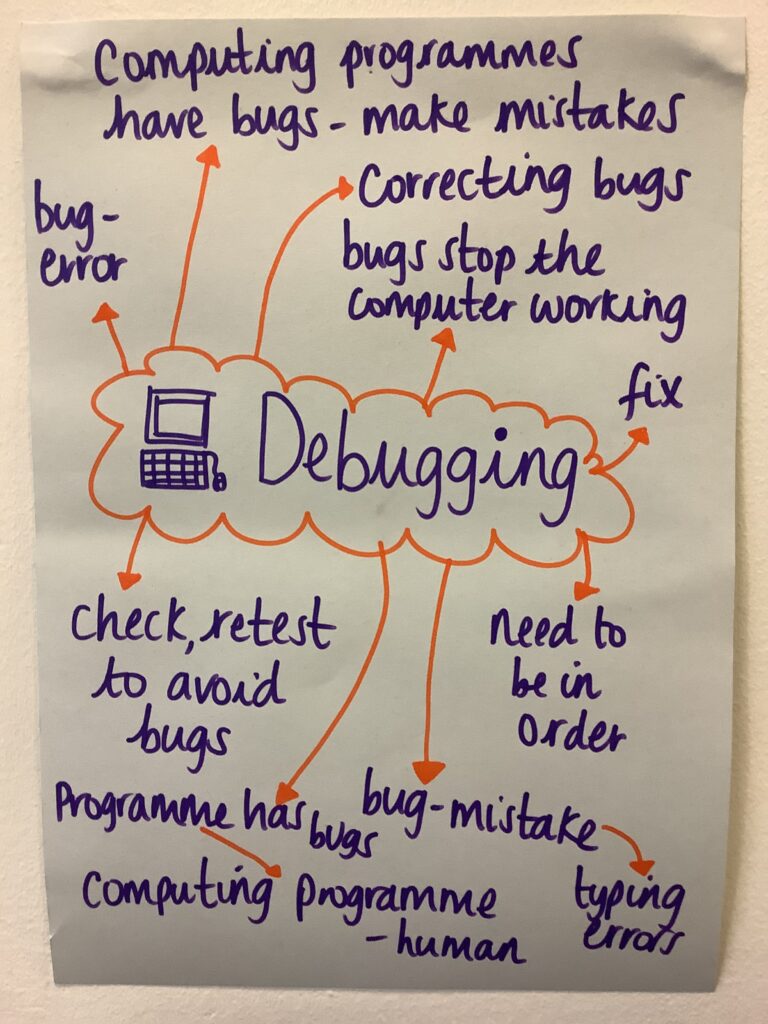 Computing programmes
have bugs - make mistakes
Correcting bugs
bug -
error
bugs stop the
computer working
fix
Debugging
Check, retest
to avoid
bugs
need to
be in
order
Programme has
bugs
bug - mistake
Computing programme
- human
typing
errors